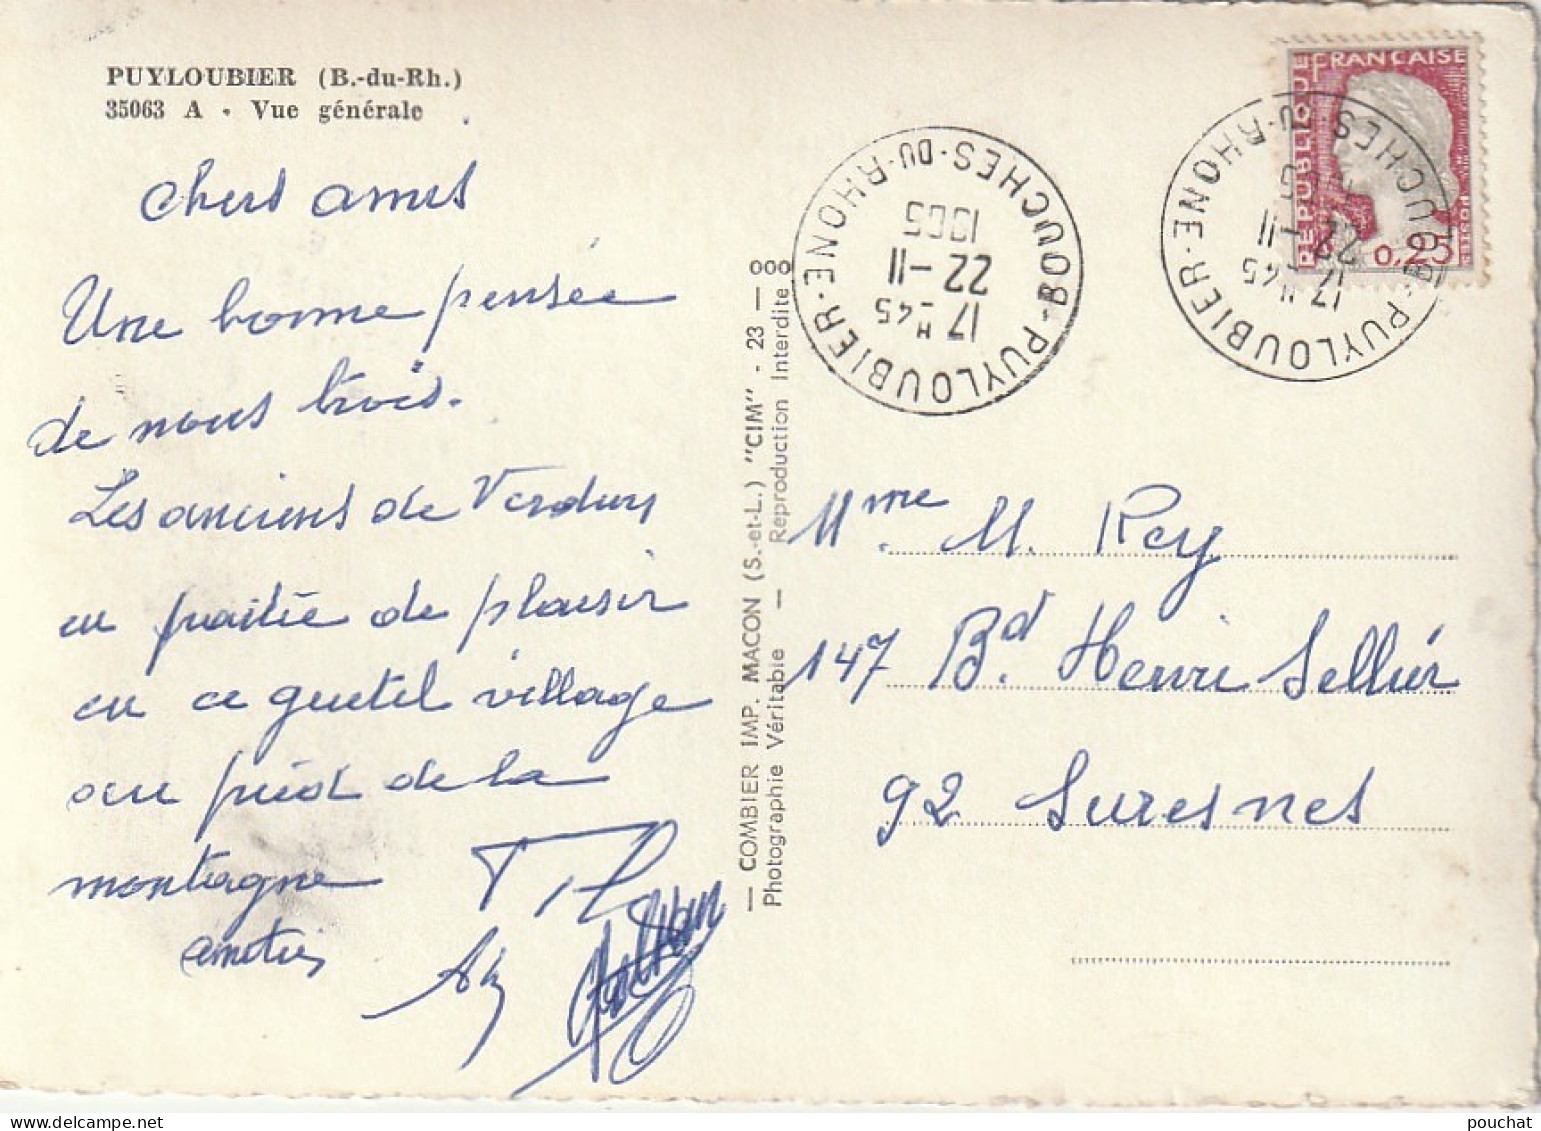 PUYLOUBIER (B.-du-Rh.)
35063 A • Vue générale
Chers amis
Une bonne pensée
de nous trois.
Les anciens de Verdun
en partie de plaisir
en ce gentil village
au pied de la
montagne
amitiés
— COMBIER IMP. MACON (S.-et-L.) "CIM" - 23 — 000
Photographie Véritable — Reproduction Interdite
PUYLOUBIER - BOUCHES-DU-RHONE
17 H 45
22 - 11
1965
REPUBLIQUE FRANÇAISE
0,25
POSTES
PUYLOUBIER - BOUCHES-DU-RHONE
17 H 45
22 - 11
Mme M. Rey
147 Bd. Henri Sellier
92 Suresnes
pouchat